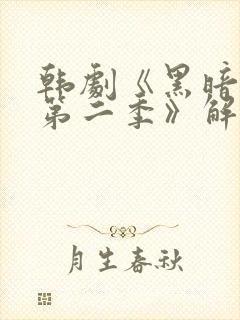 韩剧《黑暗
第二季》解
月生春秋